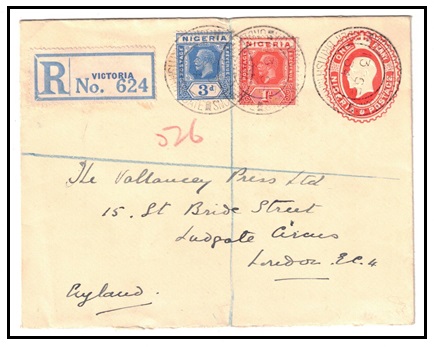 R VICTORIA No. 624
NIGERIA 3d
NIGERIA 1d
ONE PENNY
POSTAGE
526
The Vallancey Press Ltd
15. St Bride Street
Ludgate Circus
London. E.C.4
England.